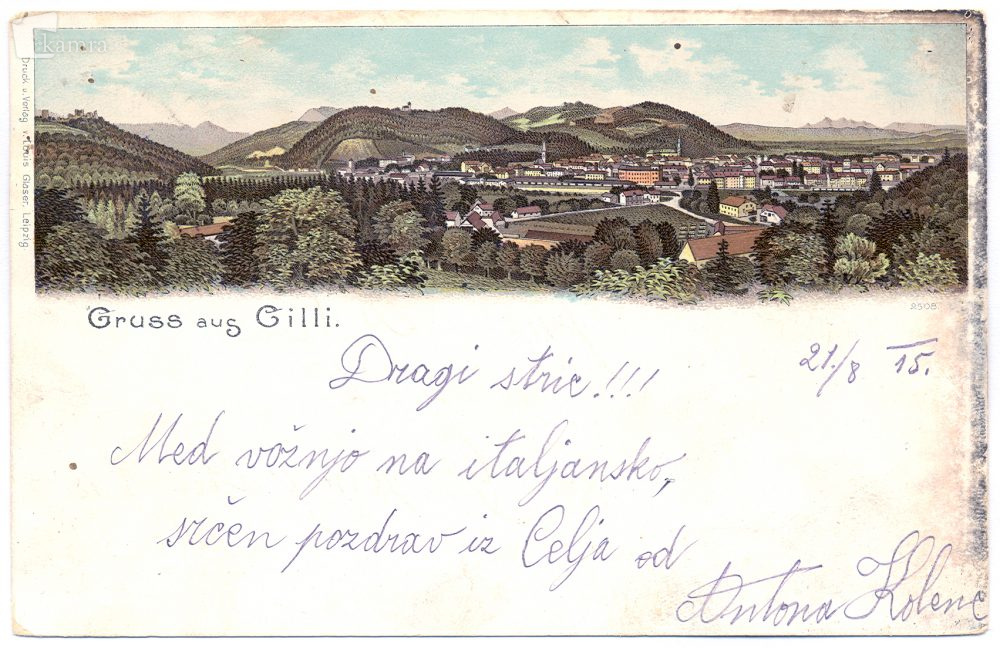 kamra
Druck u. Verlag v. Louis Glaser, Leipzig
Gruss aus Cilli.
2508
Dragi stric!!!
21./8 15.
Med vóžnjo na italjansko,
srčen pozdrav iz Celja od
Antona Kolenc